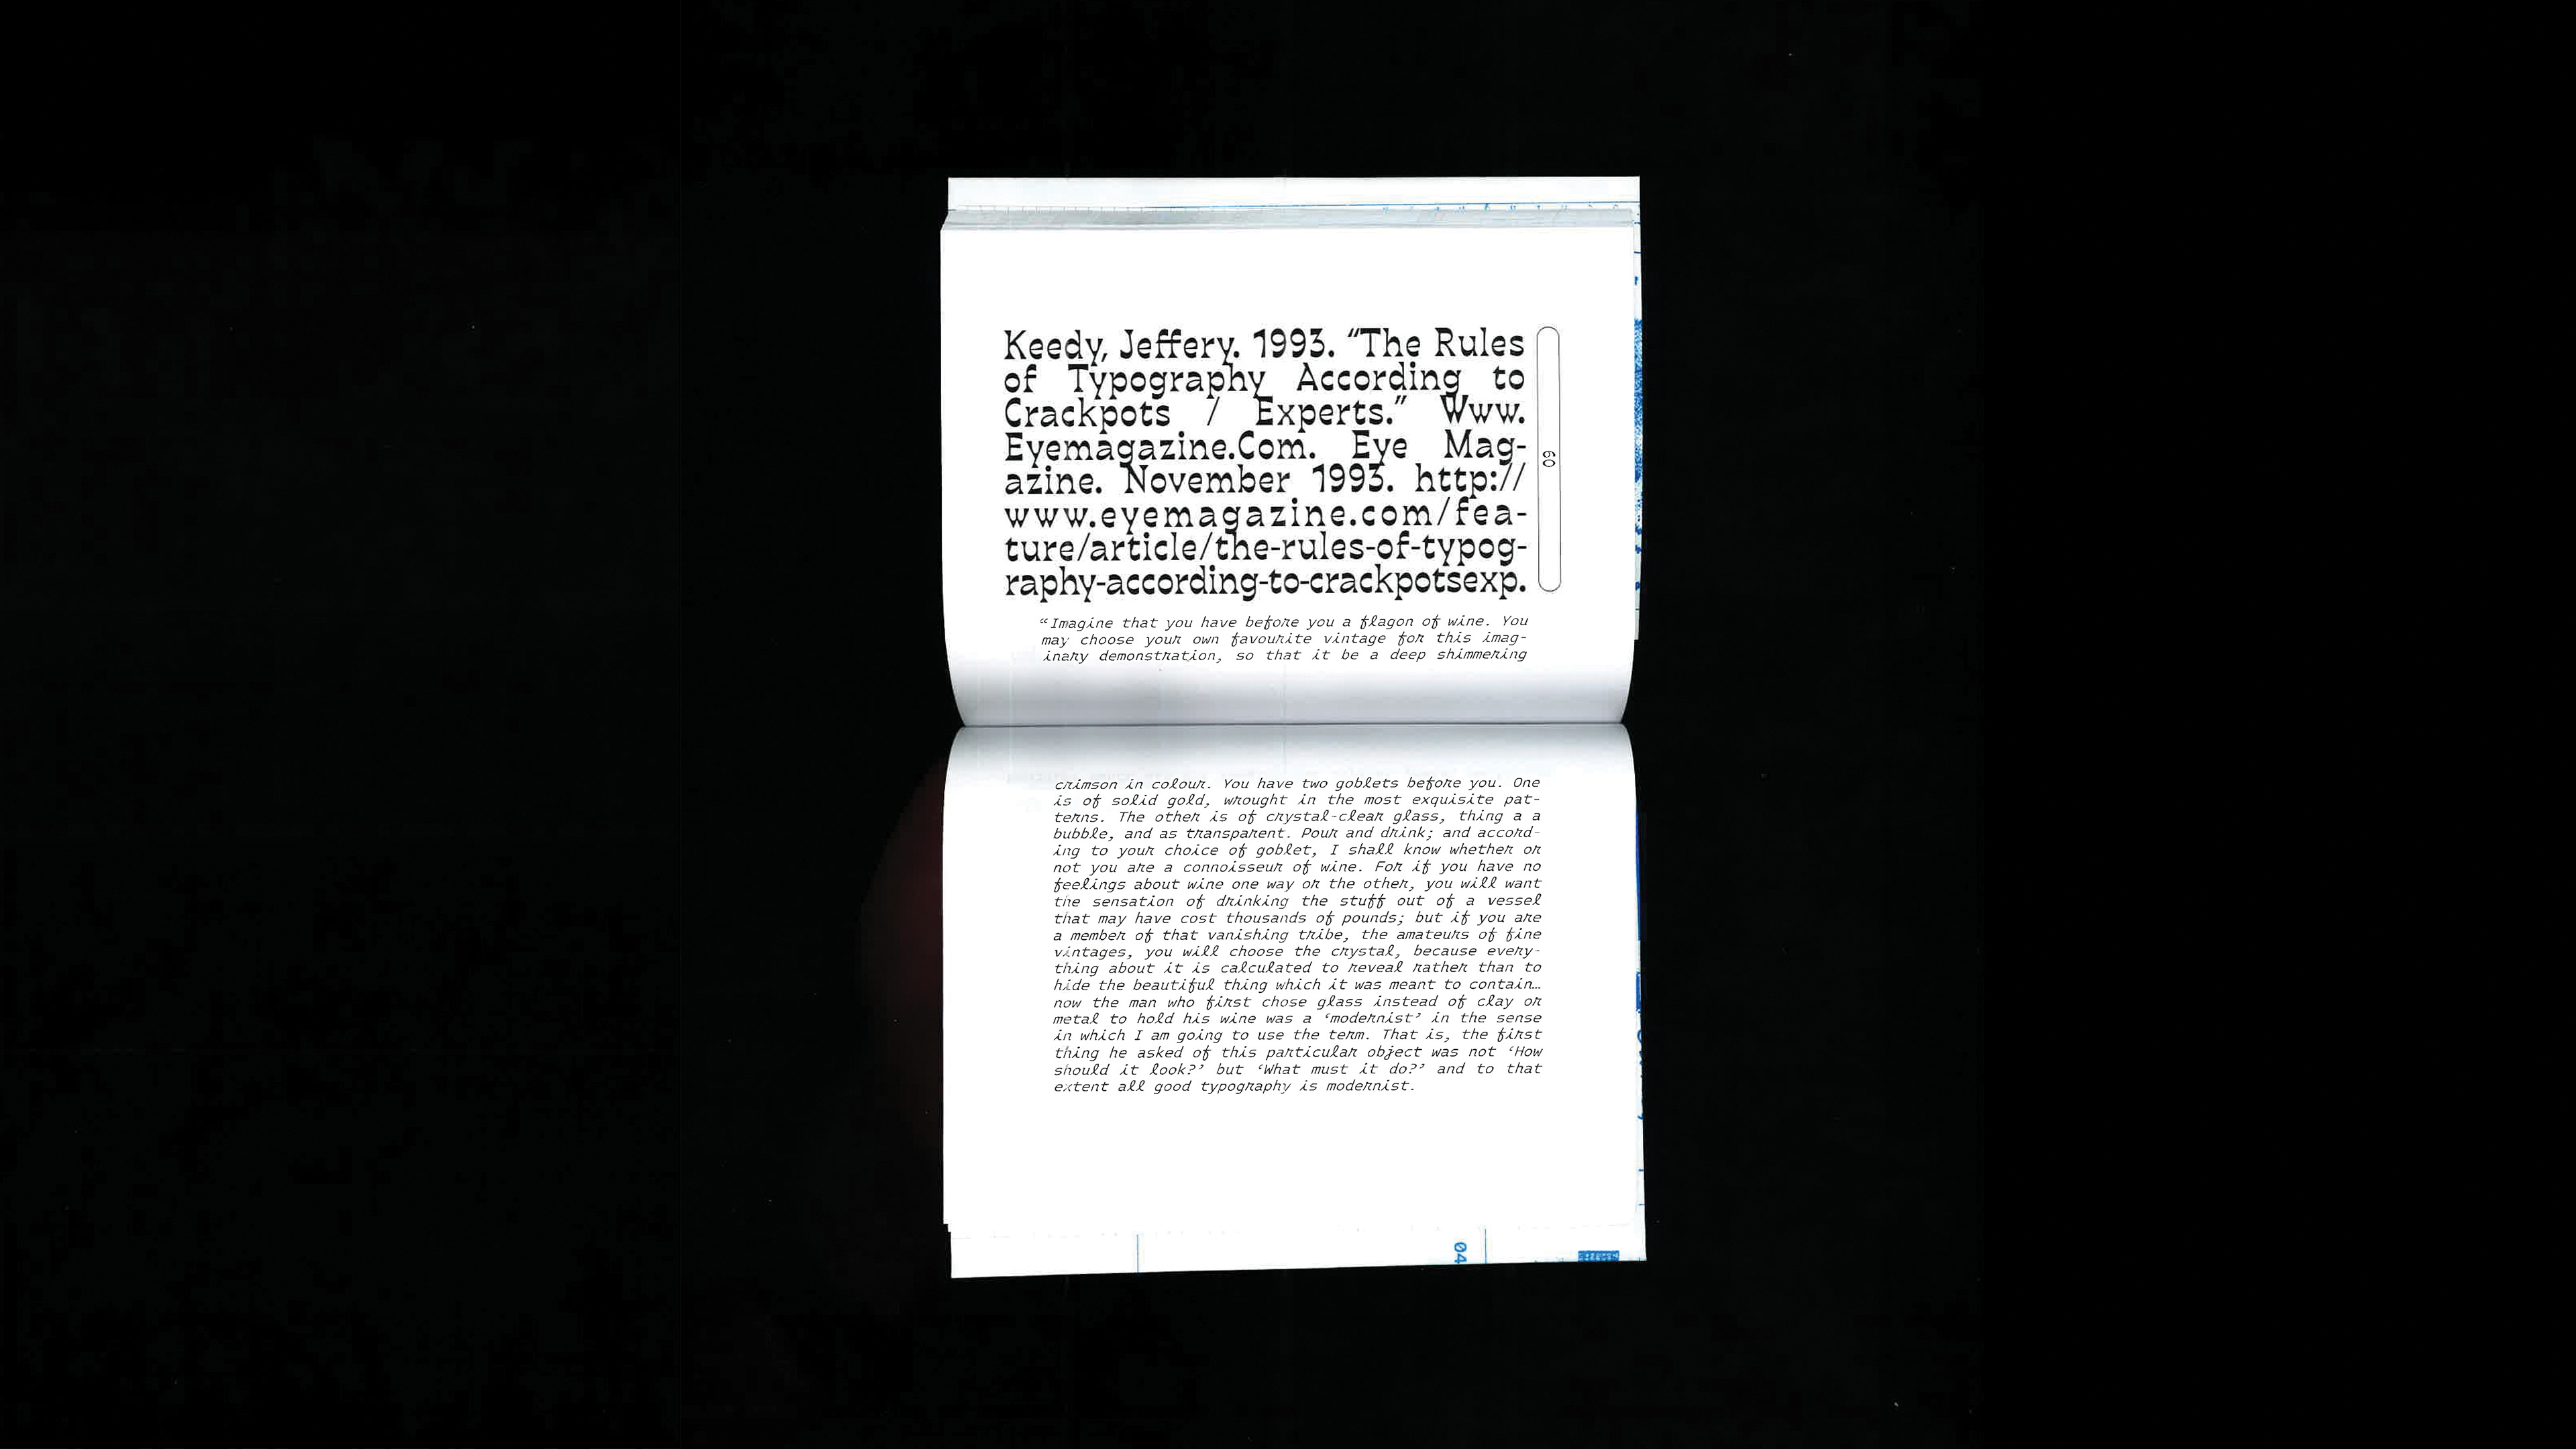 Keedy, Jeffery. 1993. “The Rules
of Typography According to
Crackpots / Experts.” Www.
Eyemagazine.Com. Eye Mag-
azine. November 1993. http://
www.eyemagazine.com/fea-
ture/article/the-rules-of-typog-
raphy-according-to-crackpotsexp.
60
“Imagine that you have before you a flagon of wine. You
may choose your own favourite vintage for this imag-
inary demonstration, so that it be a deep shimmering
crimson in colour. You have two goblets before you. One
is of solid gold, wrought in the most exquisite pat-
terns. The other is of crystal-clear glass, thing a a
bubble, and as transparent. Pour and drink; and accord-
ing to your choice of goblet, I shall know whether or
not you are a connoisseur of wine. For if you have no
feelings about wine one way or the other, you will want
the sensation of drinking the stuff out of a vessel
that may have cost thousands of pounds; but if you are
a member of that vanishing tribe, the amateurs of fine
vintages, you will choose the crystal, because every-
thing about it is calculated to reveal rather than to
hide the beautiful thing which it was meant to contain…
now the man who first chose glass instead of clay or
metal to hold his wine was a ‘modernist’ in the sense
in which I am going to use the term. That is, the first
thing he asked of this particular object was not ‘How
should it look?’ but ‘What must it do?’ and to that
extent all good typography is modernist.
04